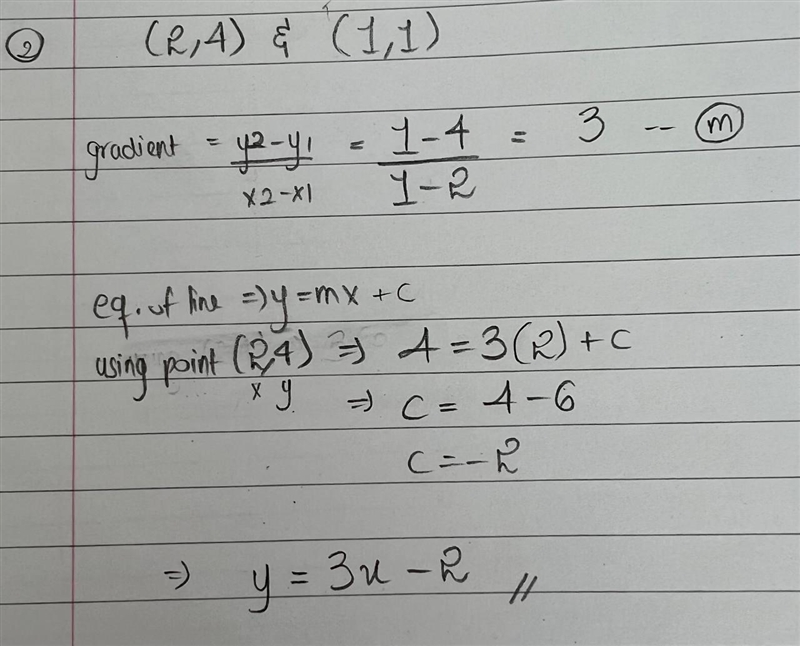 ② (2,4) & (1,1)
gradient = y2-y1 / x2-x1 = 1-4 / 1-2 = 3 -- ⓜ
eq. of line => y=mx+c
using point (2,4) => 4=3(2)+c
x y => c = 4-6
c=-2
=> y=3x-2 //